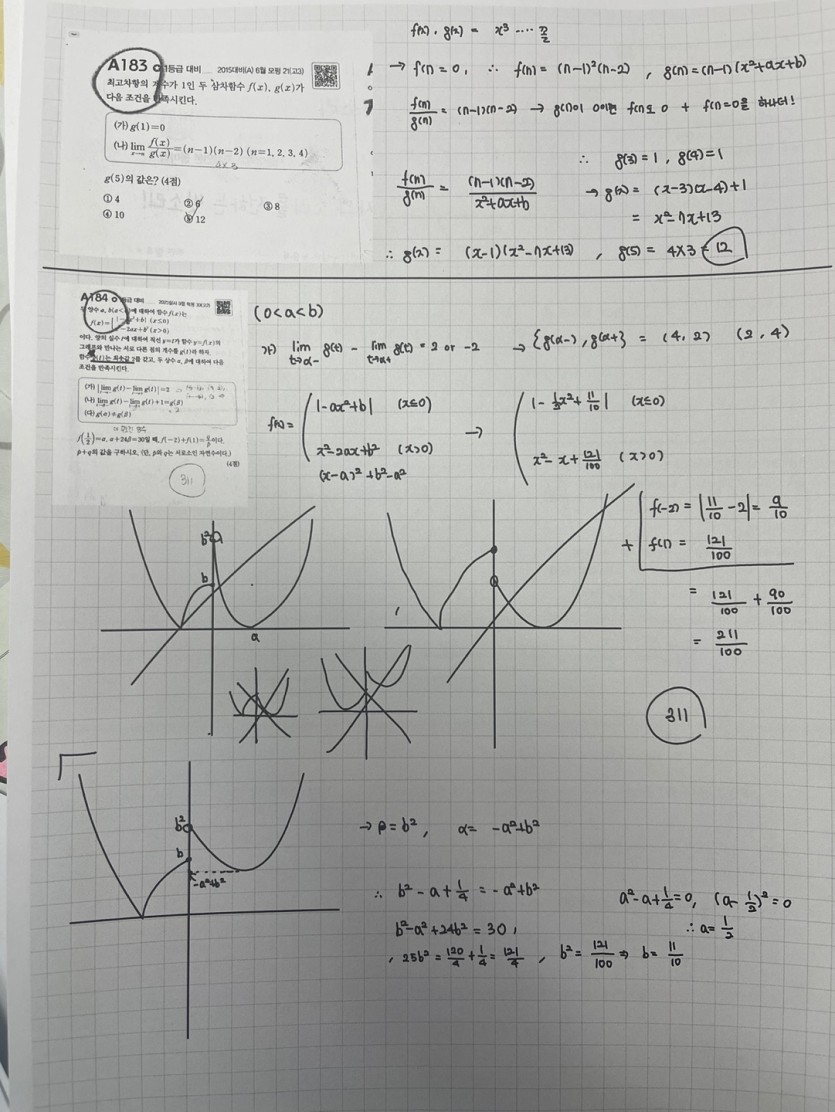 f(x), g(x) = x³ ....
A183 1등급 대비 2015대비(A) 6월 모평 21(고3)
최고차항의 계수가 1인 두 삼차함수 f(x), g(x)가
다음 조건을 만족시킨다.
(가) g(1)=0
(나) lim f(x)/g(x) = (n-1)(n-2) (n=1, 2, 3, 4)
g(5)의 값은? (4점)
① 4 ② 6 ③ 8
④ 10 ⑤ 12
→ f(n) = 0, ∴ f(n) = (n-1)²(n-2), g(n) = (n-1)(x²+ax+b)
f(n)/g(n) = (n-1)(n-2) → g(n)이 0이면 f(n)도 0 + f(n)=0을 하나더!
∴ g(3) = 1, g(4) = 1
f(n)/g(n) = (n-1)(n-2)/x²+ax+b → g(x) = (x-3)(x-4)+1
= x²-7x+13
∴ g(x) = (x-1)(x²-7x+13), g(5) = 4×3 = 12
A184 1등급 대비
두 양수 a, b(b<)에 대하여 함수 f(x)는
f(x) = { (x≤0)
x²-2ax+b² (x>0)
이다. 양의 실수 t에 대하여 직선 y=t가 함수 y=f(x)의
그래프와 만나는 서로 다른 점의 개수를 g(t)라 하자.
함수 g(t)는 최솟값 2를 갖고, 두 상수 α, β에 대하여 다음
조건을 만족시킨다.
(가) |lim g(t) - lim g(t)| = 2
(나) lim g(t) - lim g(t) + 1 = g(β)
(다) g(α)≠g(β)
f(1/2)=α, α+24β=30일 때, f(-2)+f(1)=q/p이다.
p+q의 값을 구하시오. (단, p와 q는 서로소인 자연수이다.)
(4점)
311
(0<a<b)
가) lim t→α- g(t) - lim t→α+ g(t) = 2 or -2 → {g(α-), g(α+)} = (4, 2) (2, 4)
f(x) = |-ax²+b| (x≤0) → |-½x²+11/10| (x≤0)
x²-2ax+b² (x>0) x²-x+121/100 (x>0)
(x-a)²+b²-a²
b²
b
a
f(-2) = |11/10 - 2| = 9/10
+ f(1) = 121/100
= 121/100 + 90/100
= 211/100
311
b²
b
-a²+b²
→ β = b², α = -a²+b²
∴ b²-a+¼ = -a²+b² a²-a+¼=0, (a-½)²=0
b²-a²+24b² = 30, ∴ a=½
, 25b² = 120/4 + 1/4 = 121/4, b² = 121/100 ⇒ b = 11/10